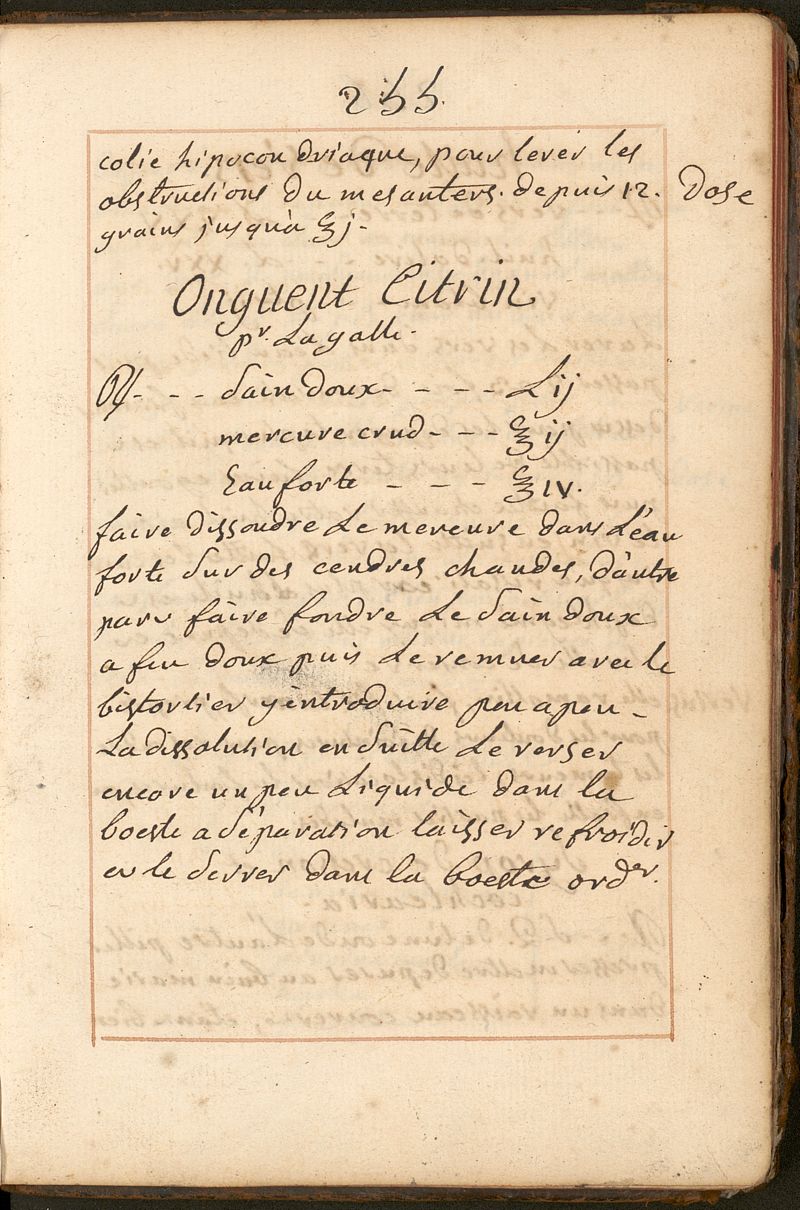 255.
colie hipocondriaque, pour lever les
obstructions du mesanters. depuis 12. Dose
grains jusqu'a ℥j.
Onguent Citrin
pr. La galle.
℞ - - - sain doux - - - - L ij
mercure crud - - - ℥ ij
Eau forte - - - ℥ iv.
faire dissoudre Le mercure dans L'eau
forte sur des cendres chaudes, d'autre
part faire fondre Le sain doux
a feu doux puis Le remuer avec le
bistortier y introduire peu a peu -
La dissolution ensuitte Le verser
encore un peu Liquide dans la
boeste a séparation laisser refroidir
et le serrer dans la boeste ordr.